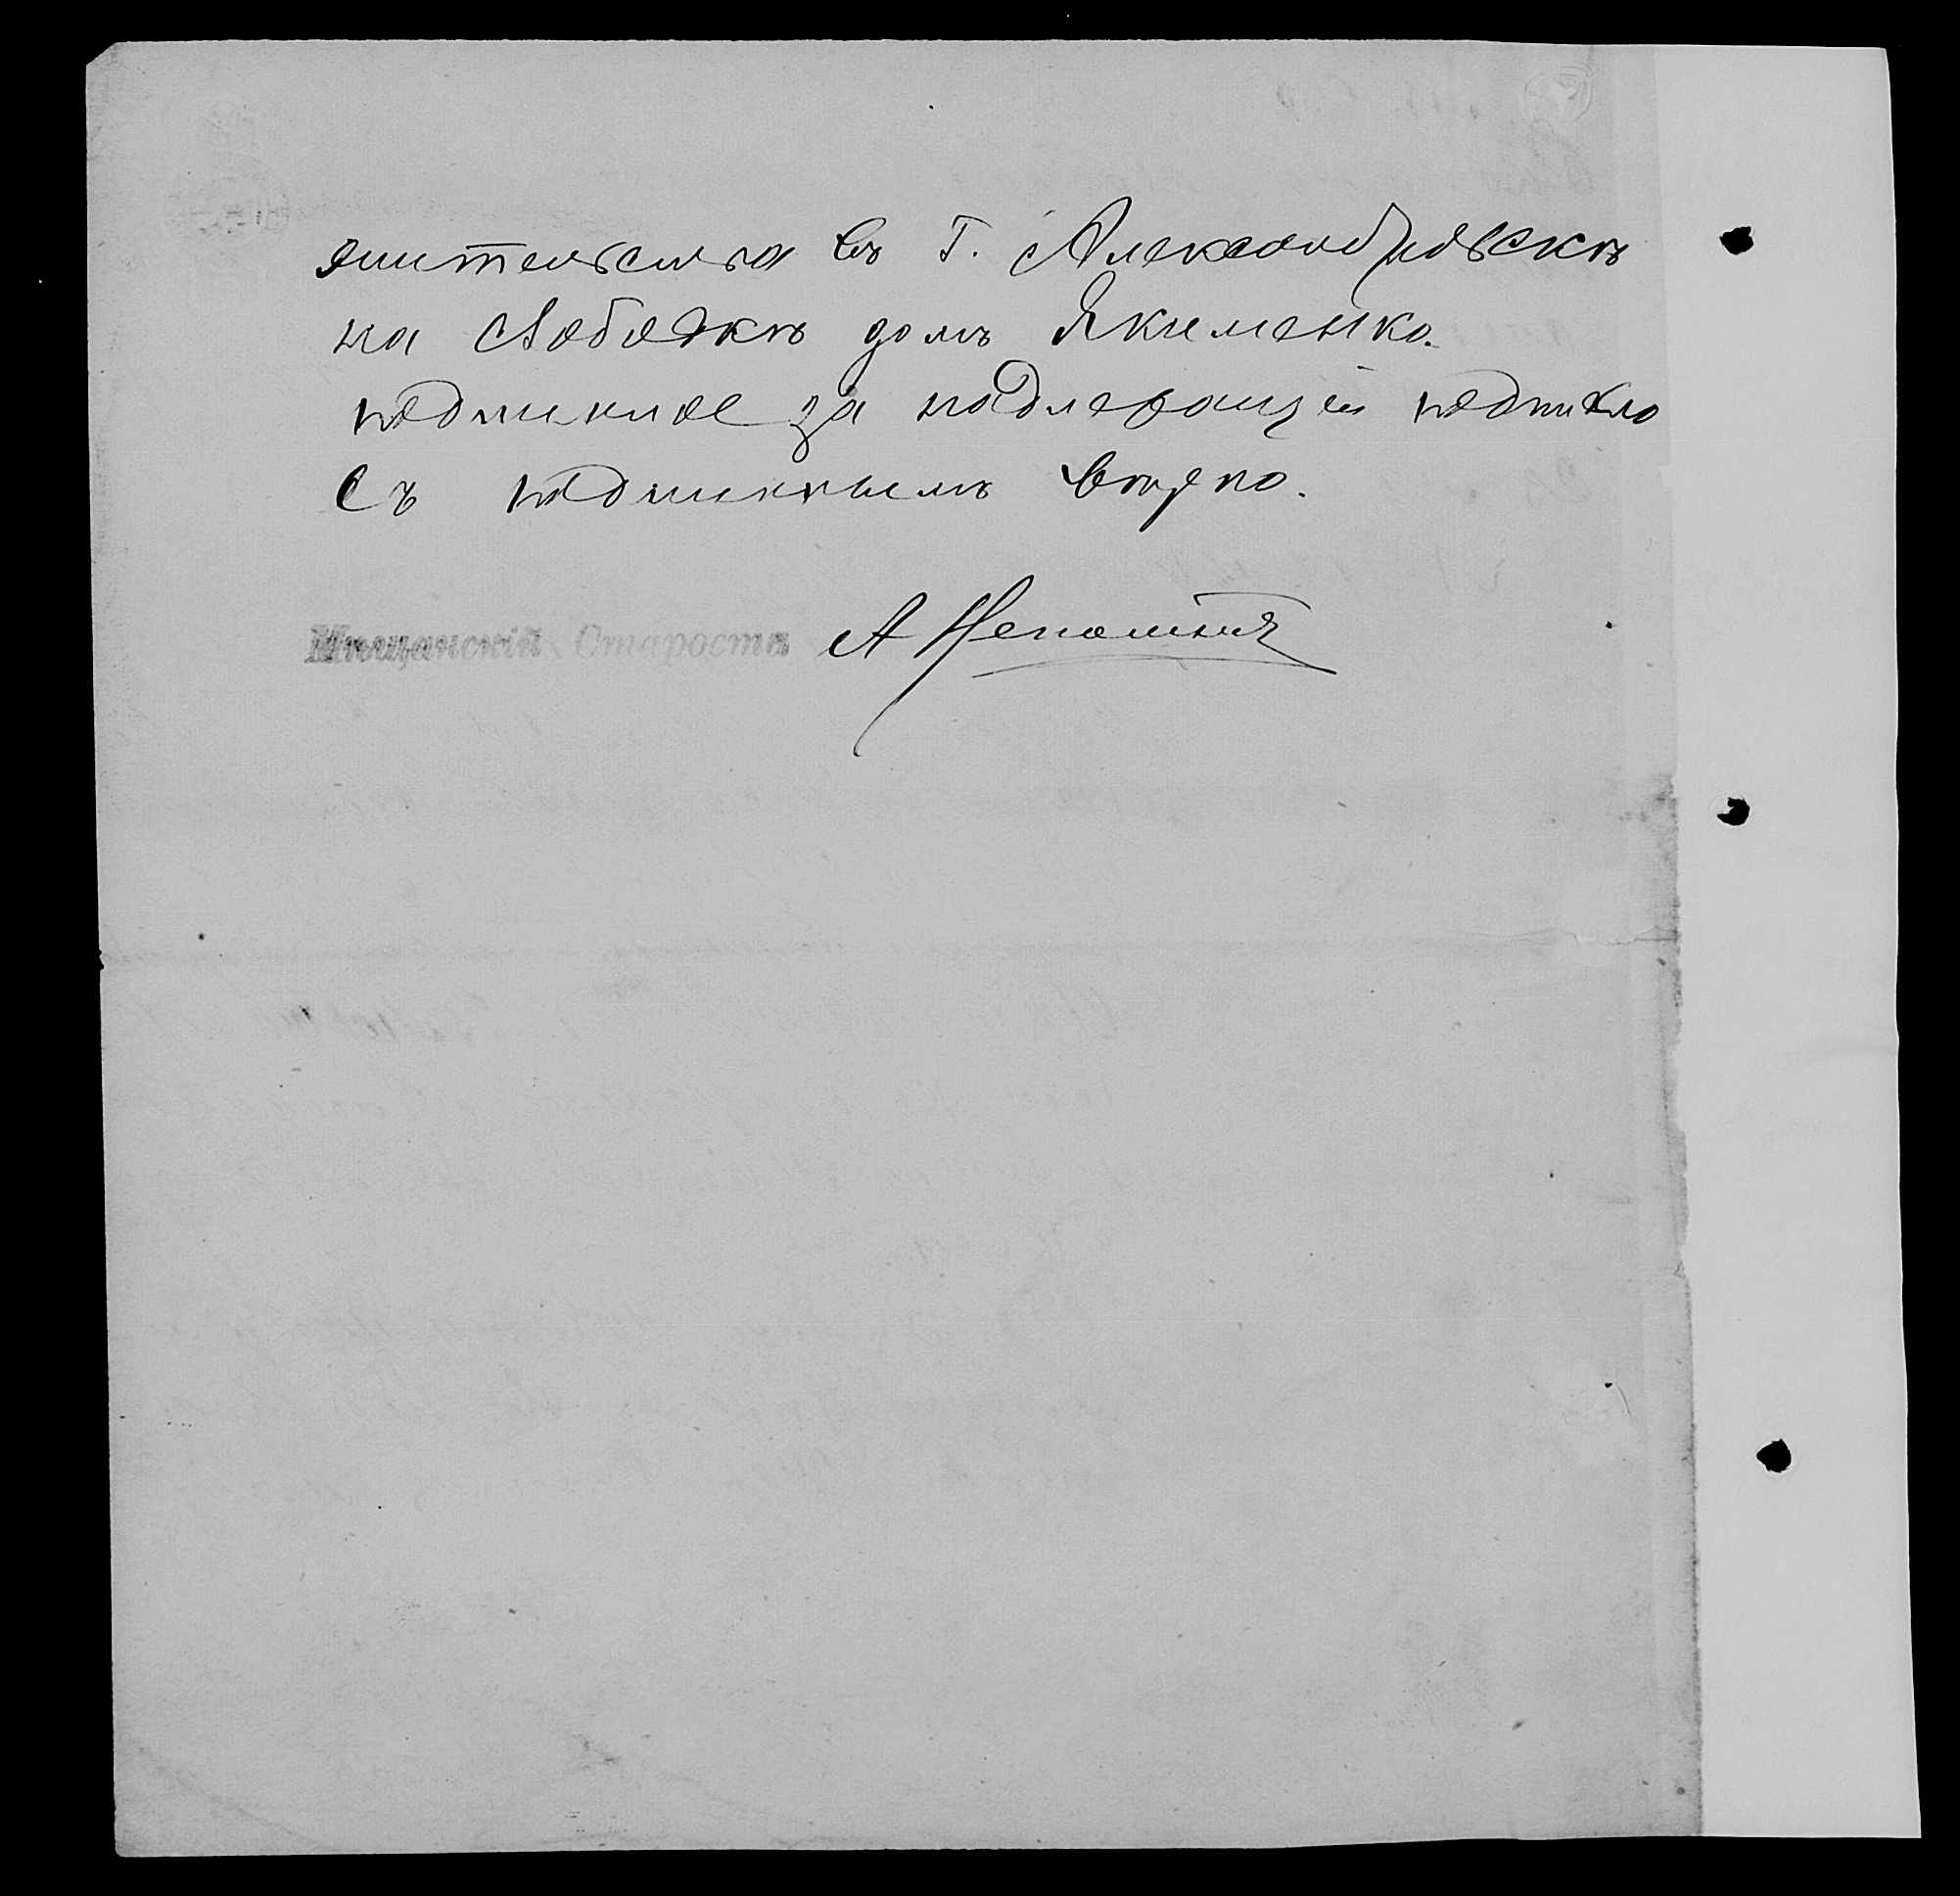 жительства въ г. Александровскѣ
на Слободкѣ домъ Якименко.
подлинное за надлежащей подписью
Съ подлиннымъ вѣрно.
Мѣщанскій Староста А